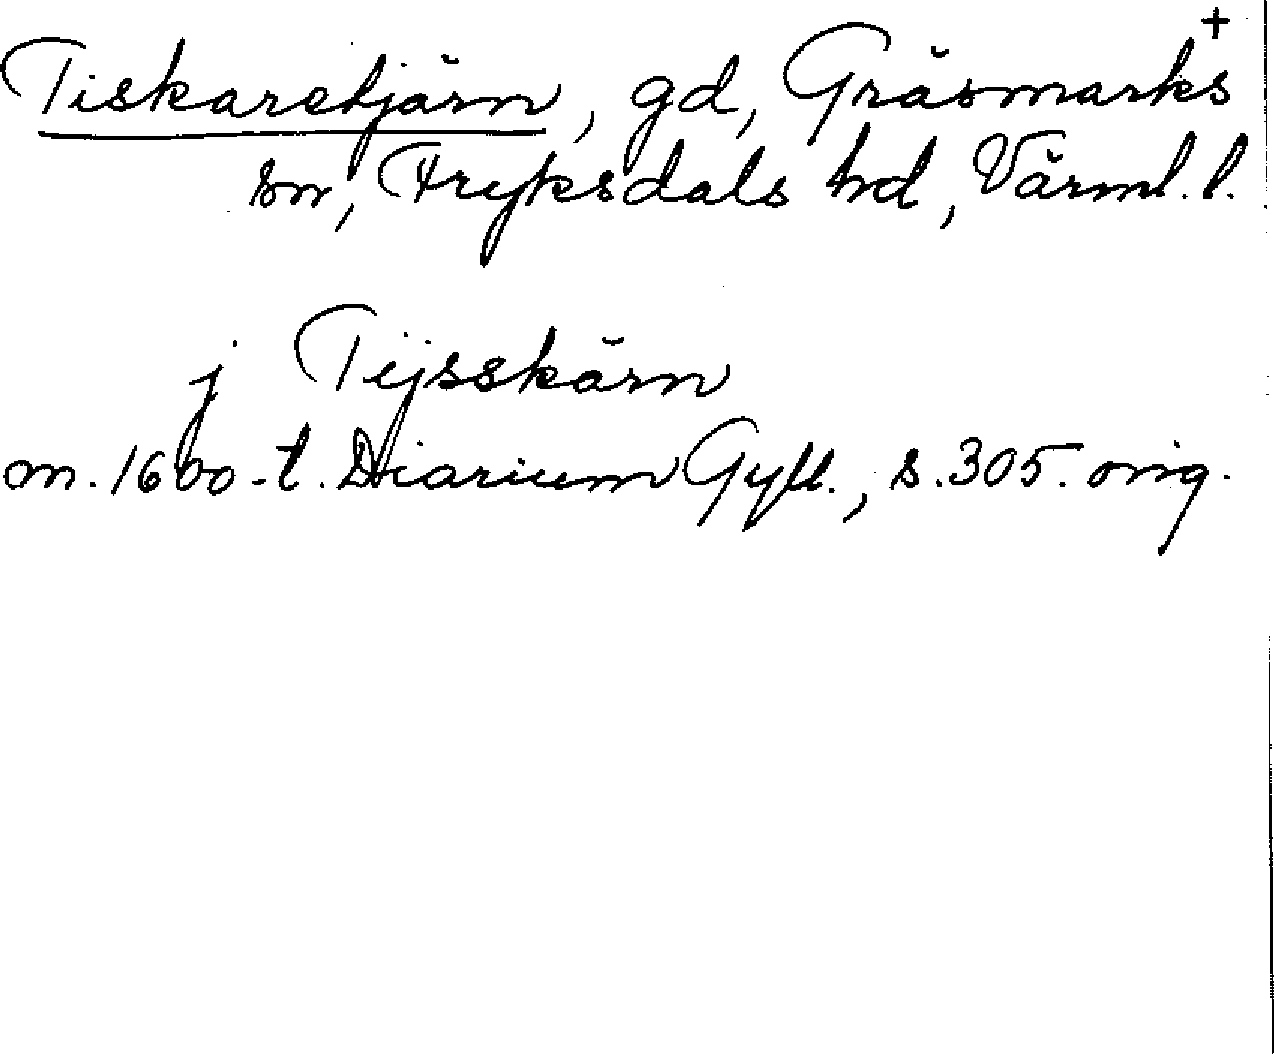 Tiskaretjärn, gd, Gräsmarks +
sn, Fryksdals hd, Värml. l.
j Tijsskärn
m. 1600-t. Diarium Gyll., s. 305. orig.